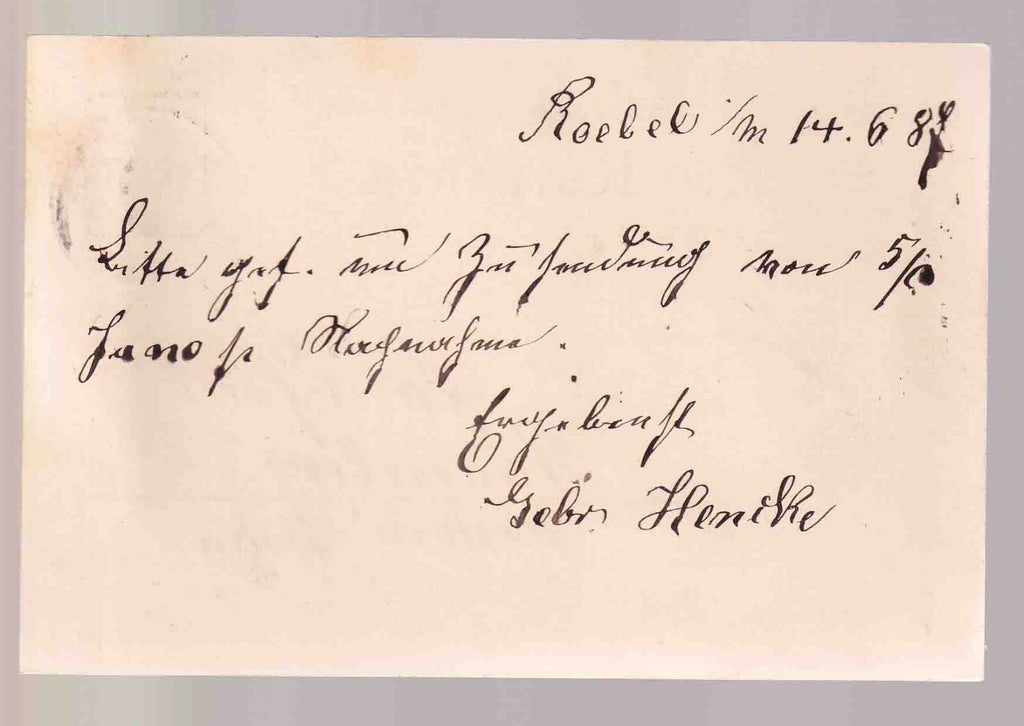 Roebel i/m 14. 6 87
Bitte gef. um Zusendung von 5/
Jano p Nachnahme.
Ergebenst
Gebr Hencke